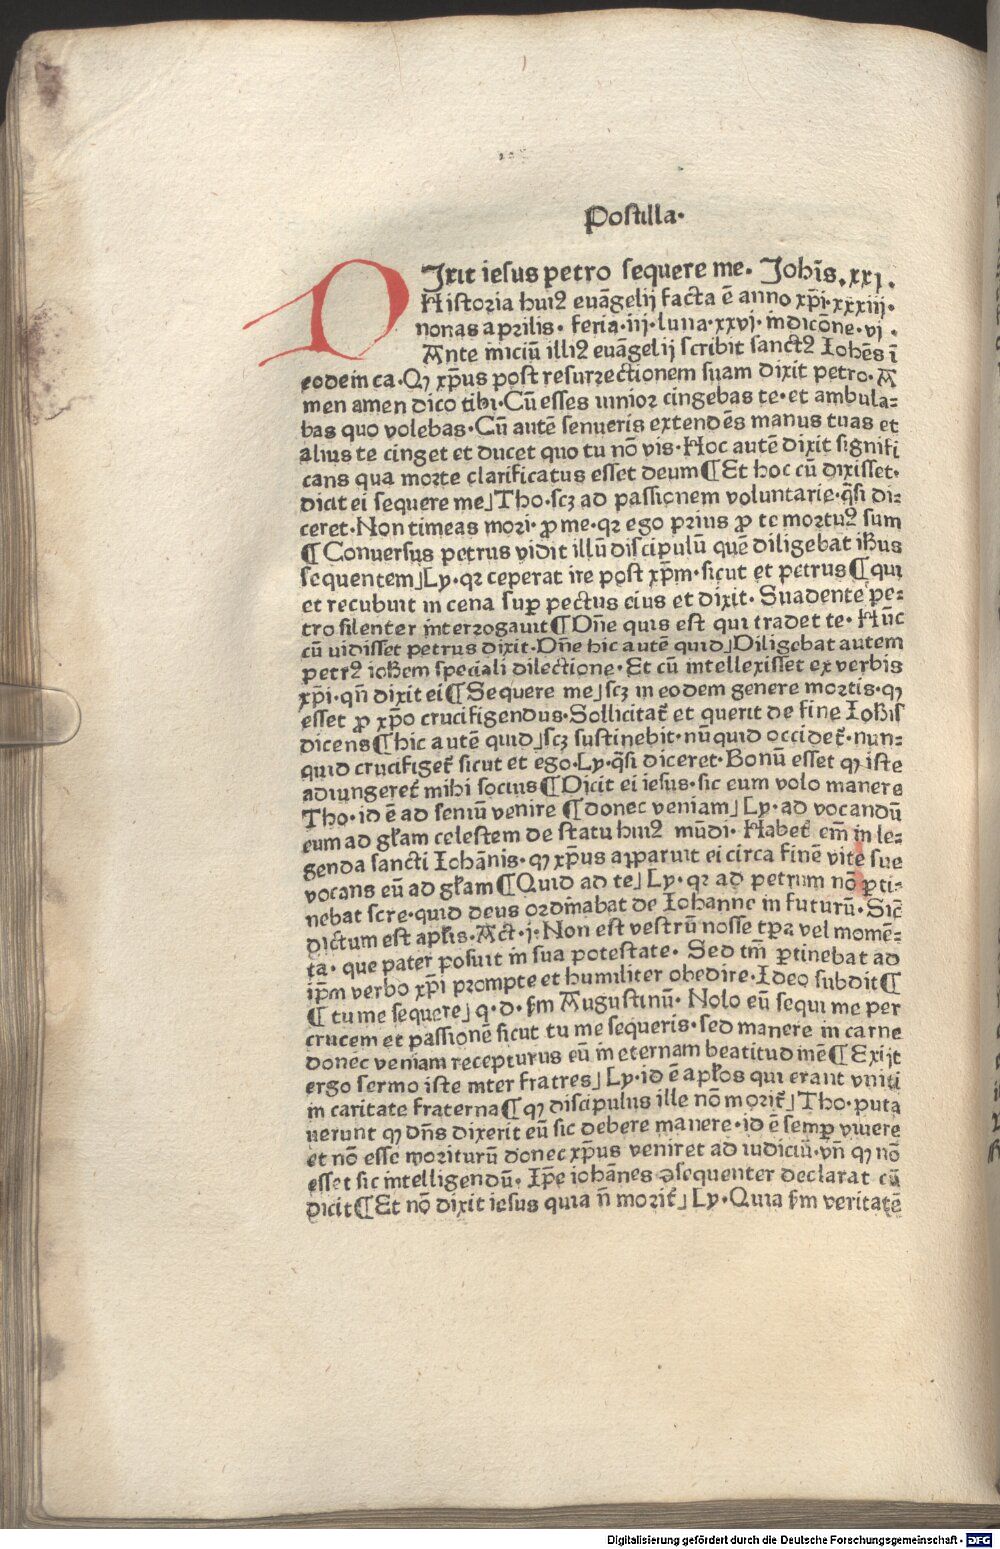 Postilla·
DIxit iesus petro sequere me. Johīs.xxj.
Historia huiꝰ euāgelij facta ē anno xp̄i·xxxiij·
nonas aprilis· feria·iij·luna·xxvj·indicōne·vj·
Ante iniciū illiꝰ euāgelij scribit sanctꝰ Iohēs ī
eodem ca·Qꝫ xp̄us post resurrectionem suam dixit petro·A
men amen dico tibi·Cū esses iunior cingebas te·et ambula⸗
bas quo volebas·Cū autē senueris extendēs manus tuas et
alius te cinget et ducet quo tu nō vis·Hoc autē dixit signifi
cans qua morte clarificatus esset deum¶Et hoc cū dixisset·
dicit ei sequere me⌋Tho·scꝫ ad passionem voluntarie·q̄si di⸗
ceret·Non timeas mori·ꝓ me·qꝛ ego prius ꝓ te mortuꝰ sum
¶Conuersus petrus vidit illū discipulū quē diligebat ihūs
sequentem⌋Ly·qꝛ ceperat ire post xp̄m·sicut et petrus¶qui
et recubuit in cena suꝑ pectus eius et dixit· Suadente pe⸗
tro silenter interrogauit¶Dn̄e quis est qui tradet te· Hūc
cū uidisset petrus dixit·Dn̄e hic autē quid⌋Diligebat autem
petrꝰ ioħem speciali dilectione·Et cū intellexisset ex verbis
xp̄i·qn̄ dixit ei¶Sequere me⌋scꝫ in eodem genere mortis·qꝫ
esset ꝓ xp̄o crucifigendus·Sollicitat̄ et querit de fine Ioħis
dicens¶hic autē quid⌋scꝫ sustinebit·nūquid occidet̄·nun⸗
quid crucifiget̄ sicut et ego·Ly·q̄si diceret·Bonū esset qꝫ iste
adiungeret̄ mihi socius¶Dicit ei iesus·sic eum volo manere
Tho·id ē ad seniū venire ¶donec veniam⌋Ly·ad vocandū
eum ad gl̄am celestem de statu huiꝰ mūdi· Habet̄ em̄ in le⸗
genda sancti Iohānis·qꝫ xp̄us apparuit ei circa finē vite sue
vocans eū ad gl̄am¶Quid ad te⌋Ly·qꝛ ad petrum nō ꝑti⸗
nebat scire·quid deus ordinabat de Iohanne in futurū·Sic̄
dictum est apl̄is·Act·j·Non est vestrū nosse tꝑa vel momē⸗
ta· que pater posuit in sua potestate· Sed tm̄ ꝑtinebat ad
ip̄m verbo xp̄i prompte et humiliter obedire·Ideo subdit¶
¶tu me sequere⌋q·d·ẜm Augustinū· Nolo eū sequi me per
crucem et passionē sicut tu me sequeris·sed manere in carne
donec veniam recepturus eū in eternam beatitudinē¶Exijt
ergo sermo iste inter fratres⌋Ly·id ē apl̄os qui erant vniti
in caritate fraterna¶qꝫ discipulus ille nō morit̄⌋Tho·puta
uerunt qꝫ dn̄s dixerit eū sic debere manere·id ē semꝑ viuere
et nō esse moriturū donec xp̄us veniret ad iudiciū·vn̄ qꝫ nō
esset sic intelligendū· Ip̄e iohānes ꝯsequenter declarat cū
dicit¶Et nō dixit iesus quia n̄ morit̄⌋Ly·Quia ẜm veritatē
Digitalisierung gefördert durch die Deutsche Forschungsgemeinschaft - DFG